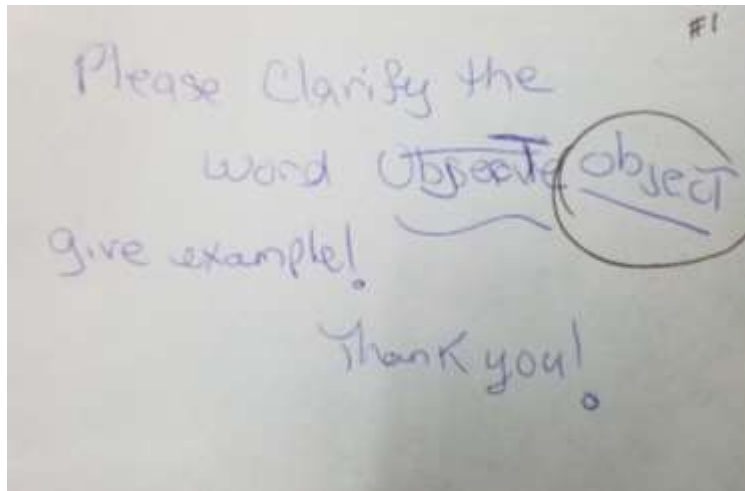 #1
Please Clarify the
word object
give example!
Thank you!